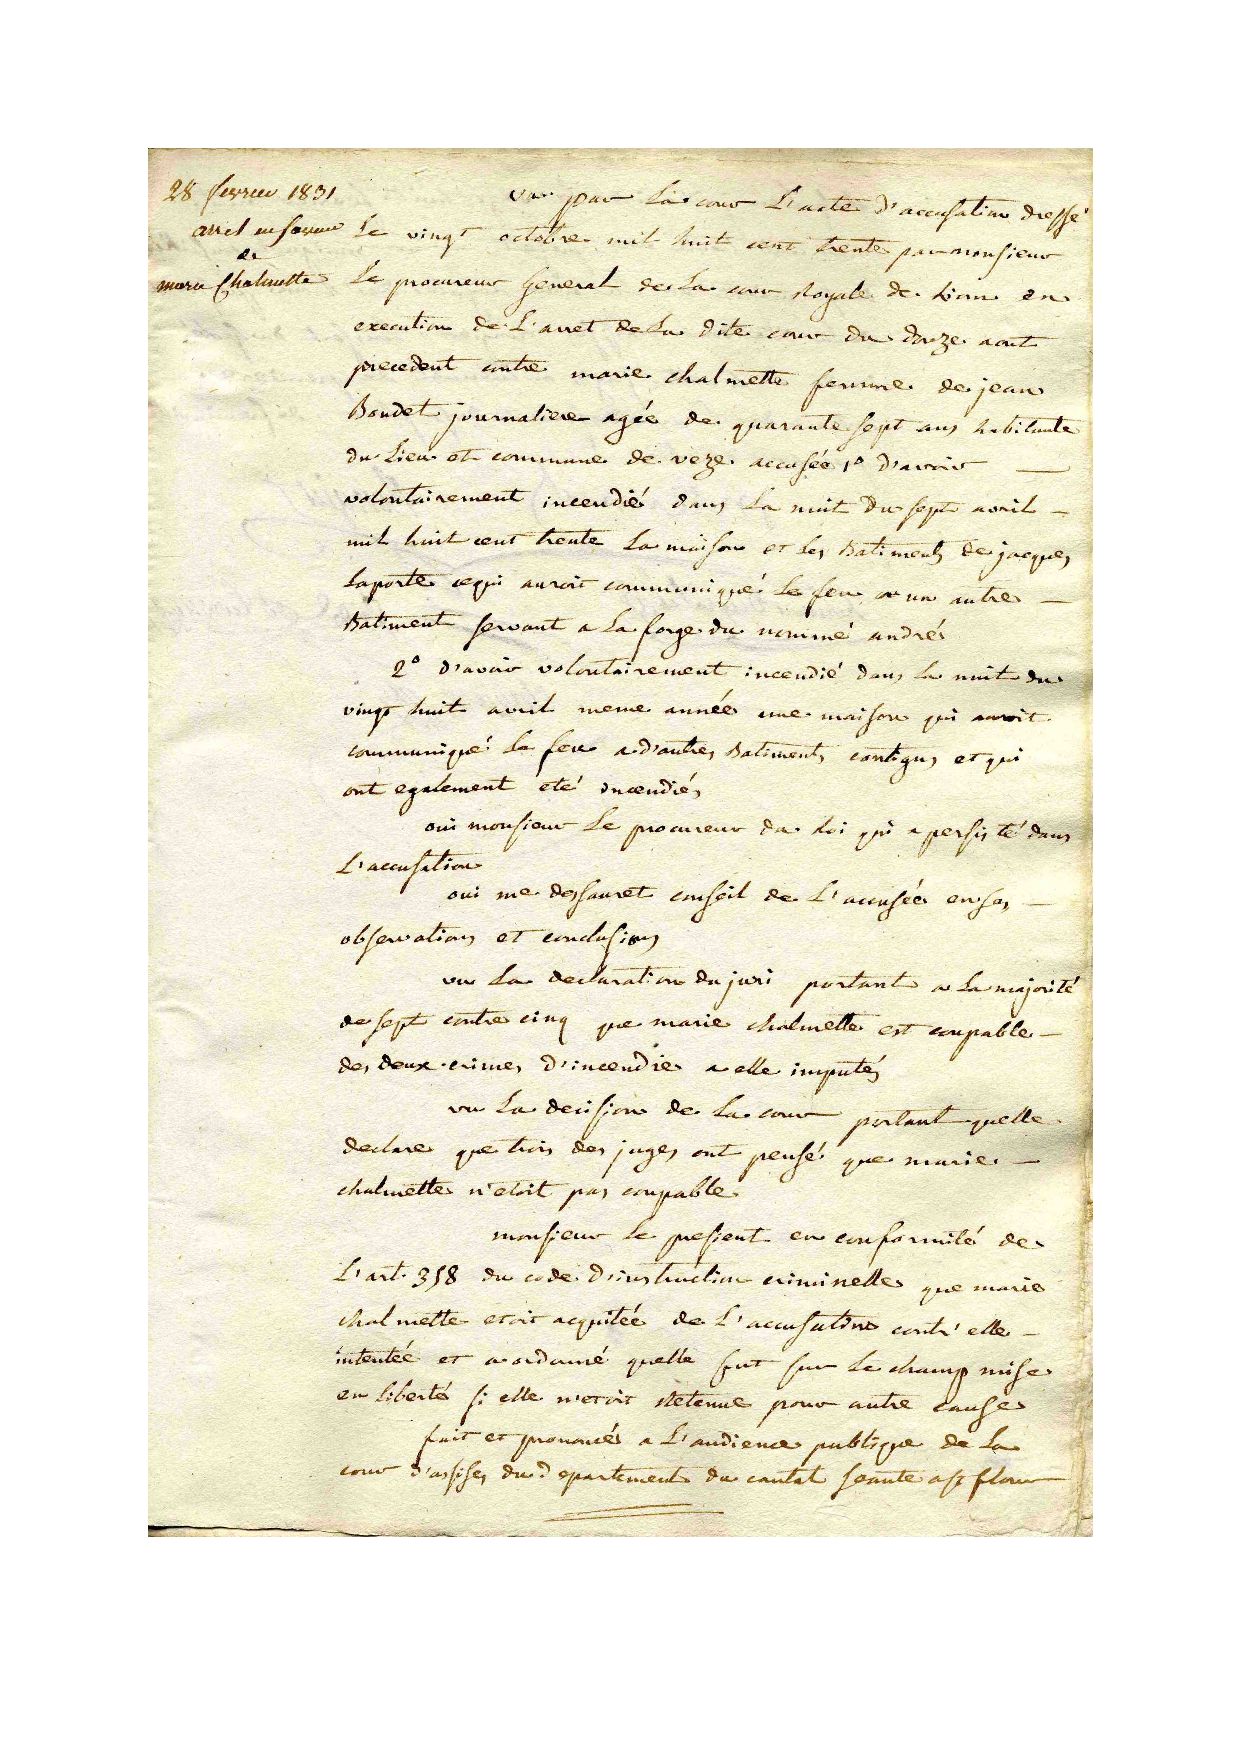 28 fevrier 1831
arret en faveur
de
marie Chalmette
vu par La cour L'acte d'accusation dressé
Le vingt octobre mil huit cent trente par monsieur
Le procureur General de La cour Royale de Riom en
execution de L'arret de La dite cour du douze aout
precedent contre marie chalmette femme de jean
Boudet journaliere agée de quarante sept ans habitante
du Lieu et commune de veze accusée 1° d'avoir —
volontairement incendié dans La nuit du sept avril —
mil huit cent trente La maison et Les Batiments de jacques
Laporte ce qui auroit communiqué Le feu a un autre —
Batiment servant a La forge du nommé andrés
2° d'avoir volontairement incendié dans La nuit du
vingt huit avril meme année une maison qui auroit
communiqué Le feu a d'autres Batiments contigus et qui
ont egalement eté incendiés
oui monsieur Le procureur du Roi qui a persisté dans
L'accusation
oui me dessauret conseil de L'accusée en ses —
observations et conclusions
vu La declaration du juri portant a La majorité
de sept contre cinq que marie chalmette est coupable —
des deux crimes d'incendie a elle imputés
vu La decision de La cour portant quelle
declare que trois des juges ont pensé que marie —
chalmette n'etoit pas coupable
monsieur Le presient en conformité de
L'art. 358 du code d'instruction criminelle que marie
chalmette etoit acquitée de L'accusation contr'elle —
intentée et a ordonné quelle fut sur Le champ mise
en Liberté si elle n'etoit detenue pour autre cause
fait et prononcé a L'audience publique de La
cour d'assises du departement du cantal seante a st flour